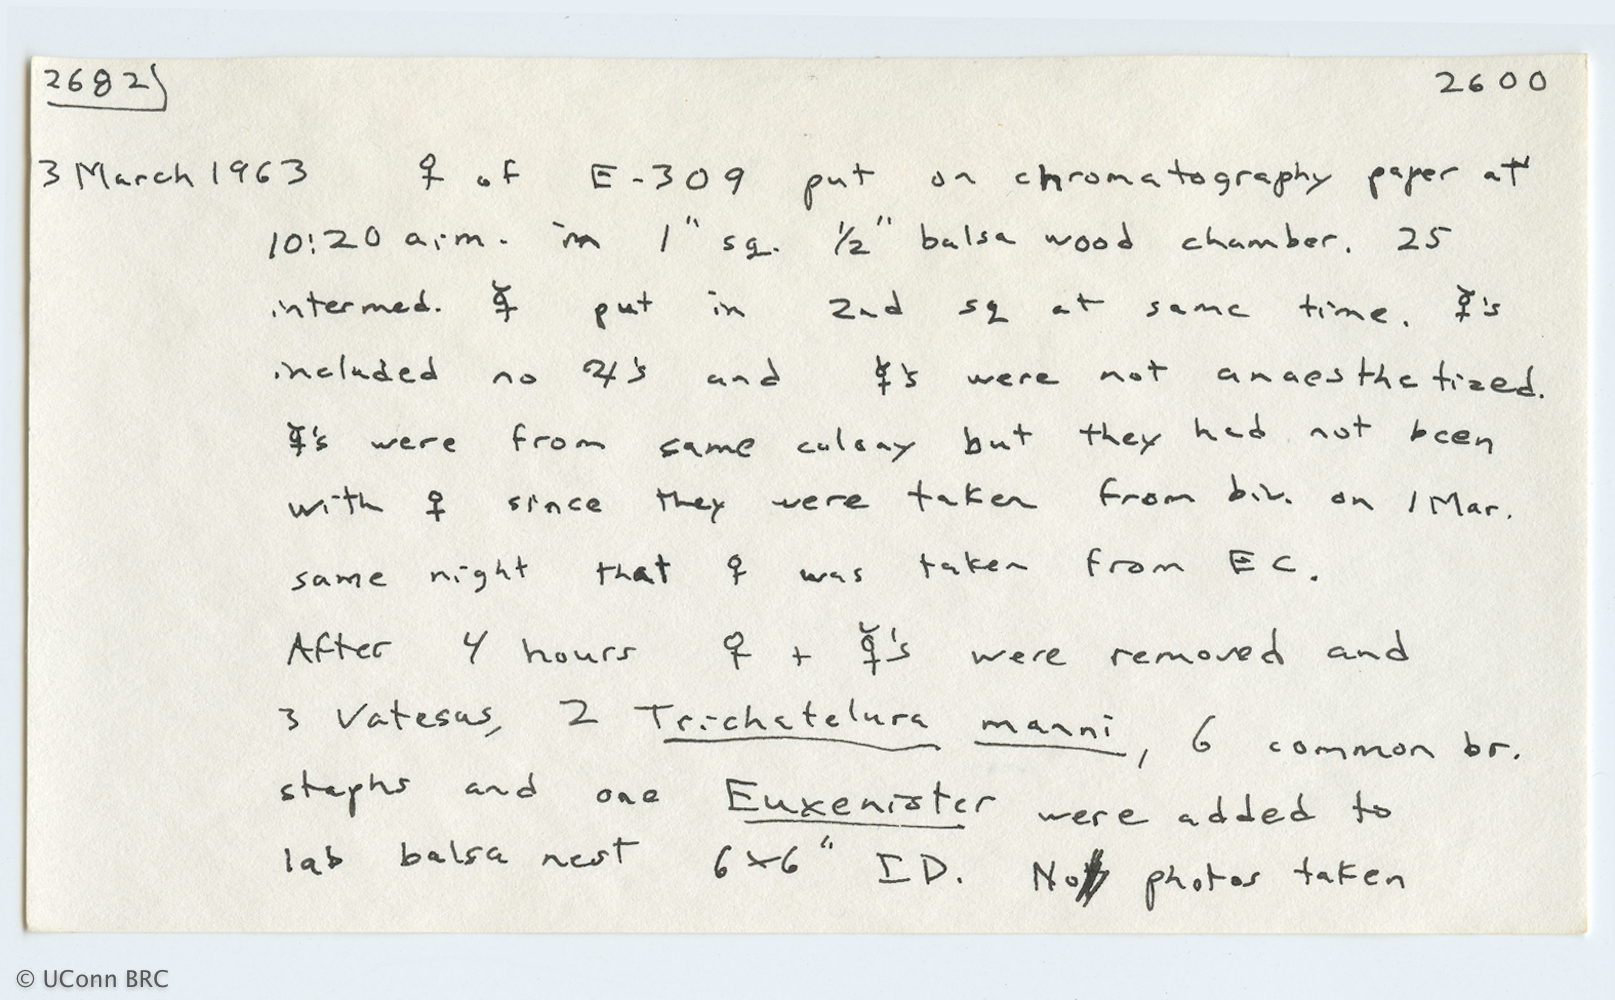 2682) 2600
3 March 1963 ♀ of E-309 put on chromatography paper at
10:20 a.m. in 1" sq. ½" balsa wood chamber. 25
intermed. ☿ put in 2nd sq at same time. ☿'s
included no ♃'s and ☿'s were not anaesthetized.
☿'s were from same colony but they had not been
with ♀ since they were taken from biv. on 1 Mar.
same night that ♀ was taken from EC.
After 4 hours ♀ + ☿'s were removed and
3 Vatesus, 2 Trichatelura manni, 6 common br.
staphs and one Euxenister were added to
lab balsa nest 6x6" ID. No photos taken
© UConn BRC